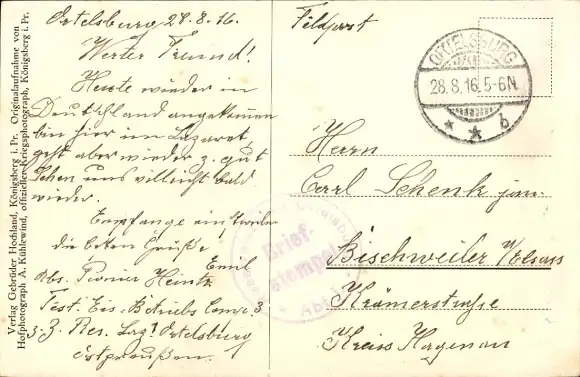 Verlag Gebrüder Hochland, Königsberg i. Pr. Originalaufnahme von
Hofphotograph A. Kühlewind, offizieller Kriegsphotograph, Königsberg i. Pr.
Ortelsburg 28.8.16.
Werter Freund!
Heute wieder in
Deutschland angekommen
bin hier im Lazaret
geht aber wieder z. gut
sehen uns villeicht bald
wieder.
Empfange einstweilen
die besten Grüße
Emil
Abs. Pionier Heintz
Fest. Eis. Betriebs Comp. 3
z. Z. Res. Laz. Ortelsburg
Ostpreußen.
Feldpost
ORTELSBURG
28.8.16.5-6N.
* * b
Brief-
stempel
Herrn
Carl Schenk jun.
Bischweiler U/Elsass
Krämerstrasse
Kreiss Hagenau